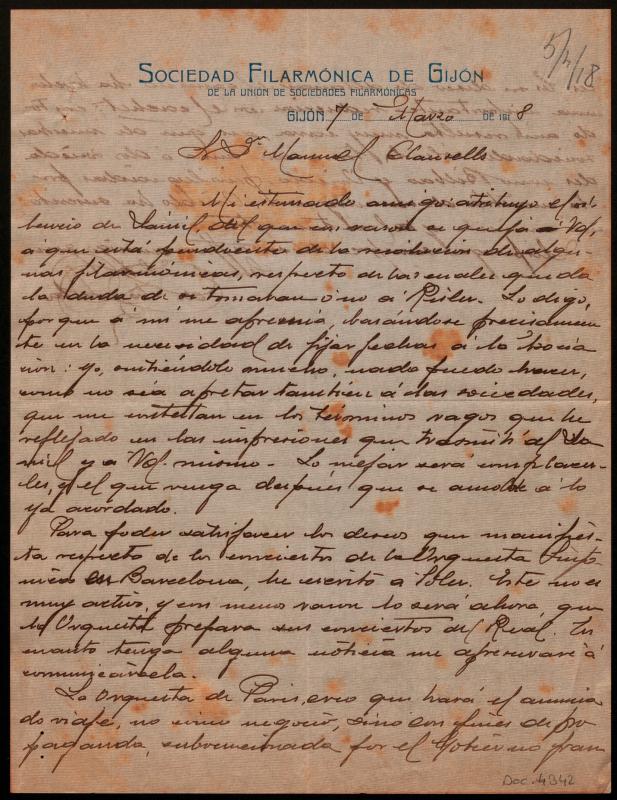 5/3/18
SOCIEDAD FILARMÓNICA DE GIJÓN
DE LA UNIÓN DE SOCIEDADES FILARMÓNICAS
GIJÓN 7 DE Marzo DE 1918
Sr Dn Manuel Clausells
Mi estimado amigo: atribuyo el si-
lencio de Daniel, del que con razon se queja á Vd,
á que está pendiente de la resolucion de algu-
nas filarmónicas, respecto de las cuales queda
la duda de si tomaran ó no á Risler. Lo digo,
porque á mi me apremia, basándose precisamen
te en la necesidad de fijar fechas á la Asocia
cion: yo, sintiéndolo mucho, nada puedo hacer,
como no sea apretar tambien á las sociedades,
que me contestan en los términos vagos que he
reflejado en las impresiones que trasmití á Da
niel y a Vd. mismo. Lo mejor será emplazar-
les, y el que venga después que se amolde á lo
ya acordado.
Para poder satisfacer los deseos que manifies-
ta respecto de los conciertos de la Orquesta Sinfó
nica en Barcelona, he escrito á Soler. Este no es
muy activo, y con menos razon lo será ahora, que
la Orquesta prepara sus conciertos del Real. En
cuanto tenga alguna noticia me apresuraré á
comunicársela.
La Orquesta de Paris, creo que hará el anuncia
do viaje, no como negocio, sino con fines de pro
paganda, subvencionada por el Gobierno fran
Doc. 4342